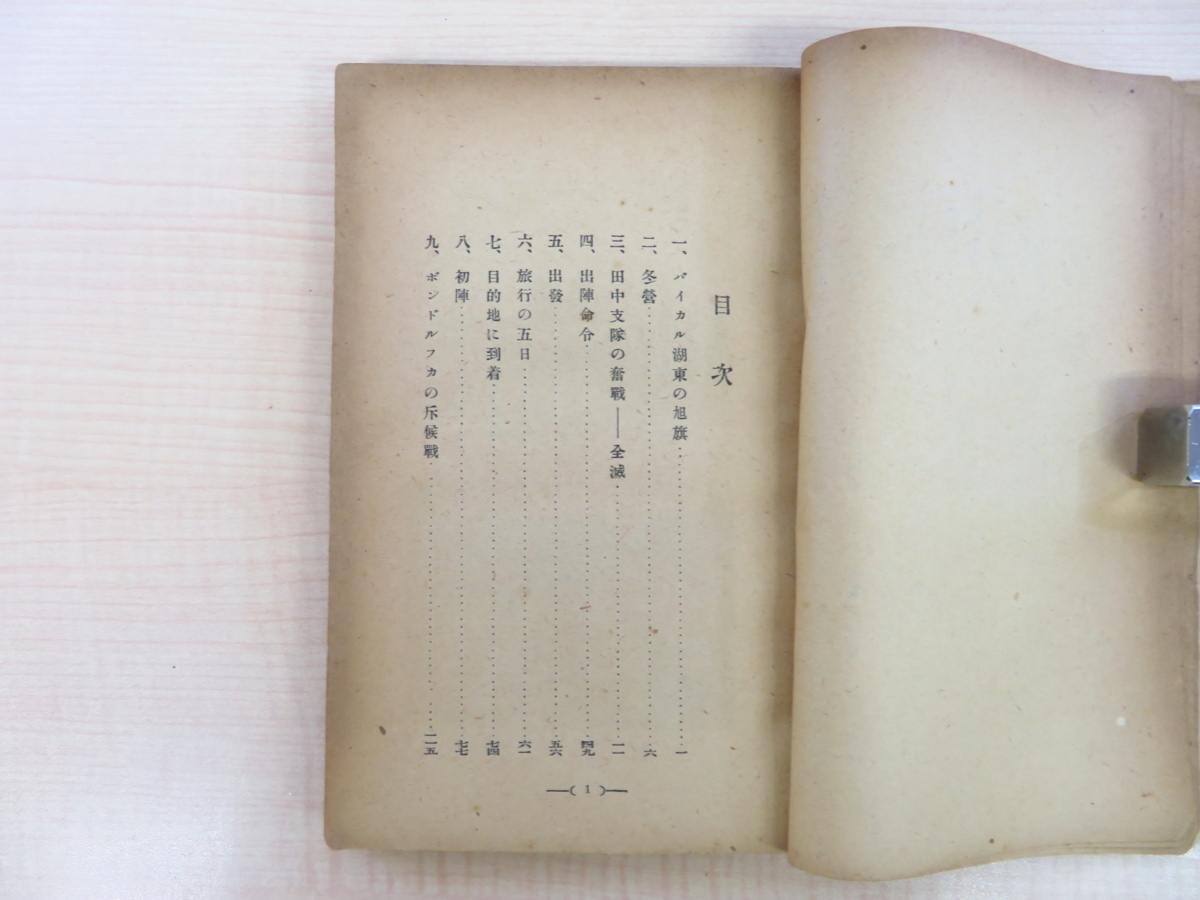 目次
一、バイカル湖東の旭旗……………一
二、冬營……………六
三、田中支隊の奮戰――全滅……………一一
四、出陣命令……………四九
五、出發……………五六
六、旅行の五日……………六一
七、目的地に到着……………七四
八、初陣……………七七
九、ボンドルフカの斥候戰……………一一五
―( 1 )―